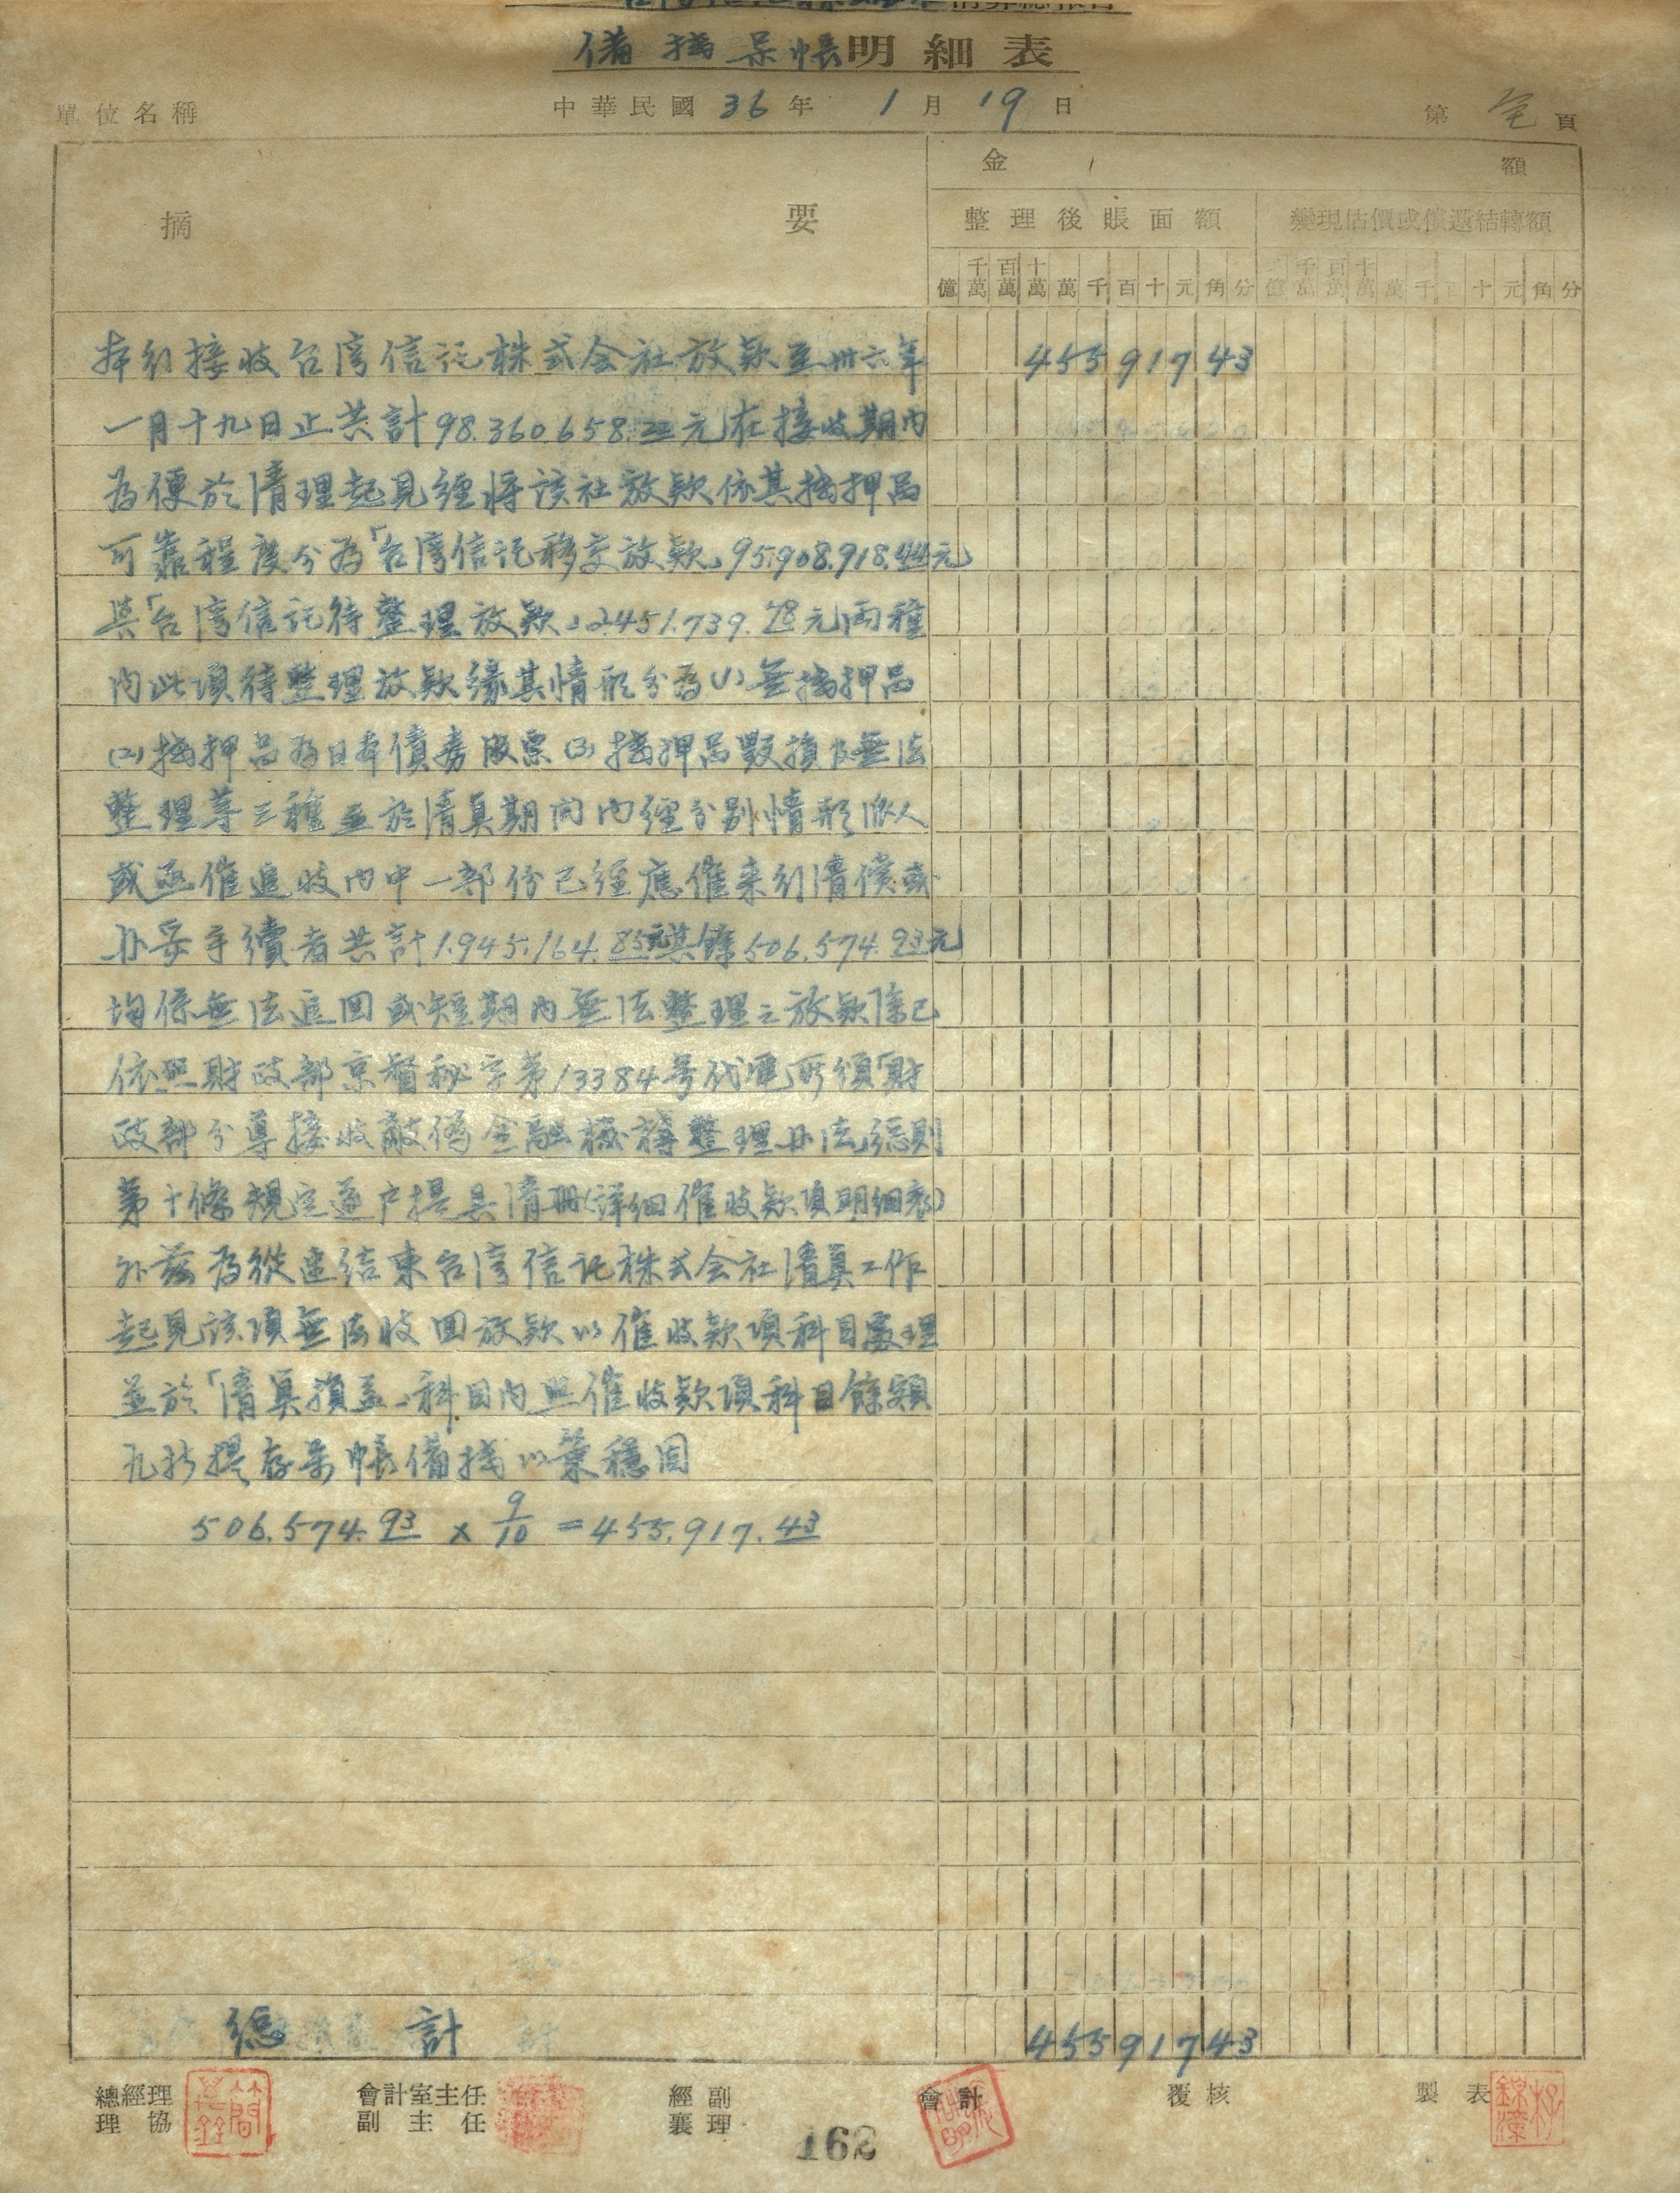 備抵呆帳明細表
單位名稱 中華民國36年1月19日 第全頁
摘要 金額
整理後賬面額 變現估價或償還結轉額
億 千萬 百萬 十萬 萬 千 百 十 元 角 分 億 千萬 百萬 十萬 萬 千 百 十 元 角 分
本行接收台湾信託株式会社放款至卅六年 455917 43
一月十九日止共計98.360.658.22元在接收期內
為便於清理起見經將該社放款依其抵押品
可靠程度分為「台湾信託移交放款」95.908.918.44元
與「台湾信託待整理放款」2.451.739.78元兩種
內此項待整理放款緣其情形分為(1)無抵押品
(2)抵押品為日本債券股票(3)抵押品毀損及無法
整理等三種並於清算期間內經分別情形派人
或函催追收內中一部份已經應催来行清償或
办妥手續者共計1.945.164.85元其餘506.574.93元
均係無法追回或短期內無法整理之放款除已
依照財政部京督秘字第13384号代電所頒「財
政部分導接收敵偽金融機構整理办法」總則
第十條規定逐户提具清冊(詳細催收款項明細表)
外茲為從速結束台湾信託株式会社清算工作
起見該項無法收回放款以催收款項科目處理
並於「清算損益」科目內照催收款項科目餘額
九折提存呆帳備抵以策穩固
506.574.93 × 9/10 = 455.917.43
總計 455917 43
總經理 協理 會計室主任 副主任 經副襄理 會計 覆核 製表
162